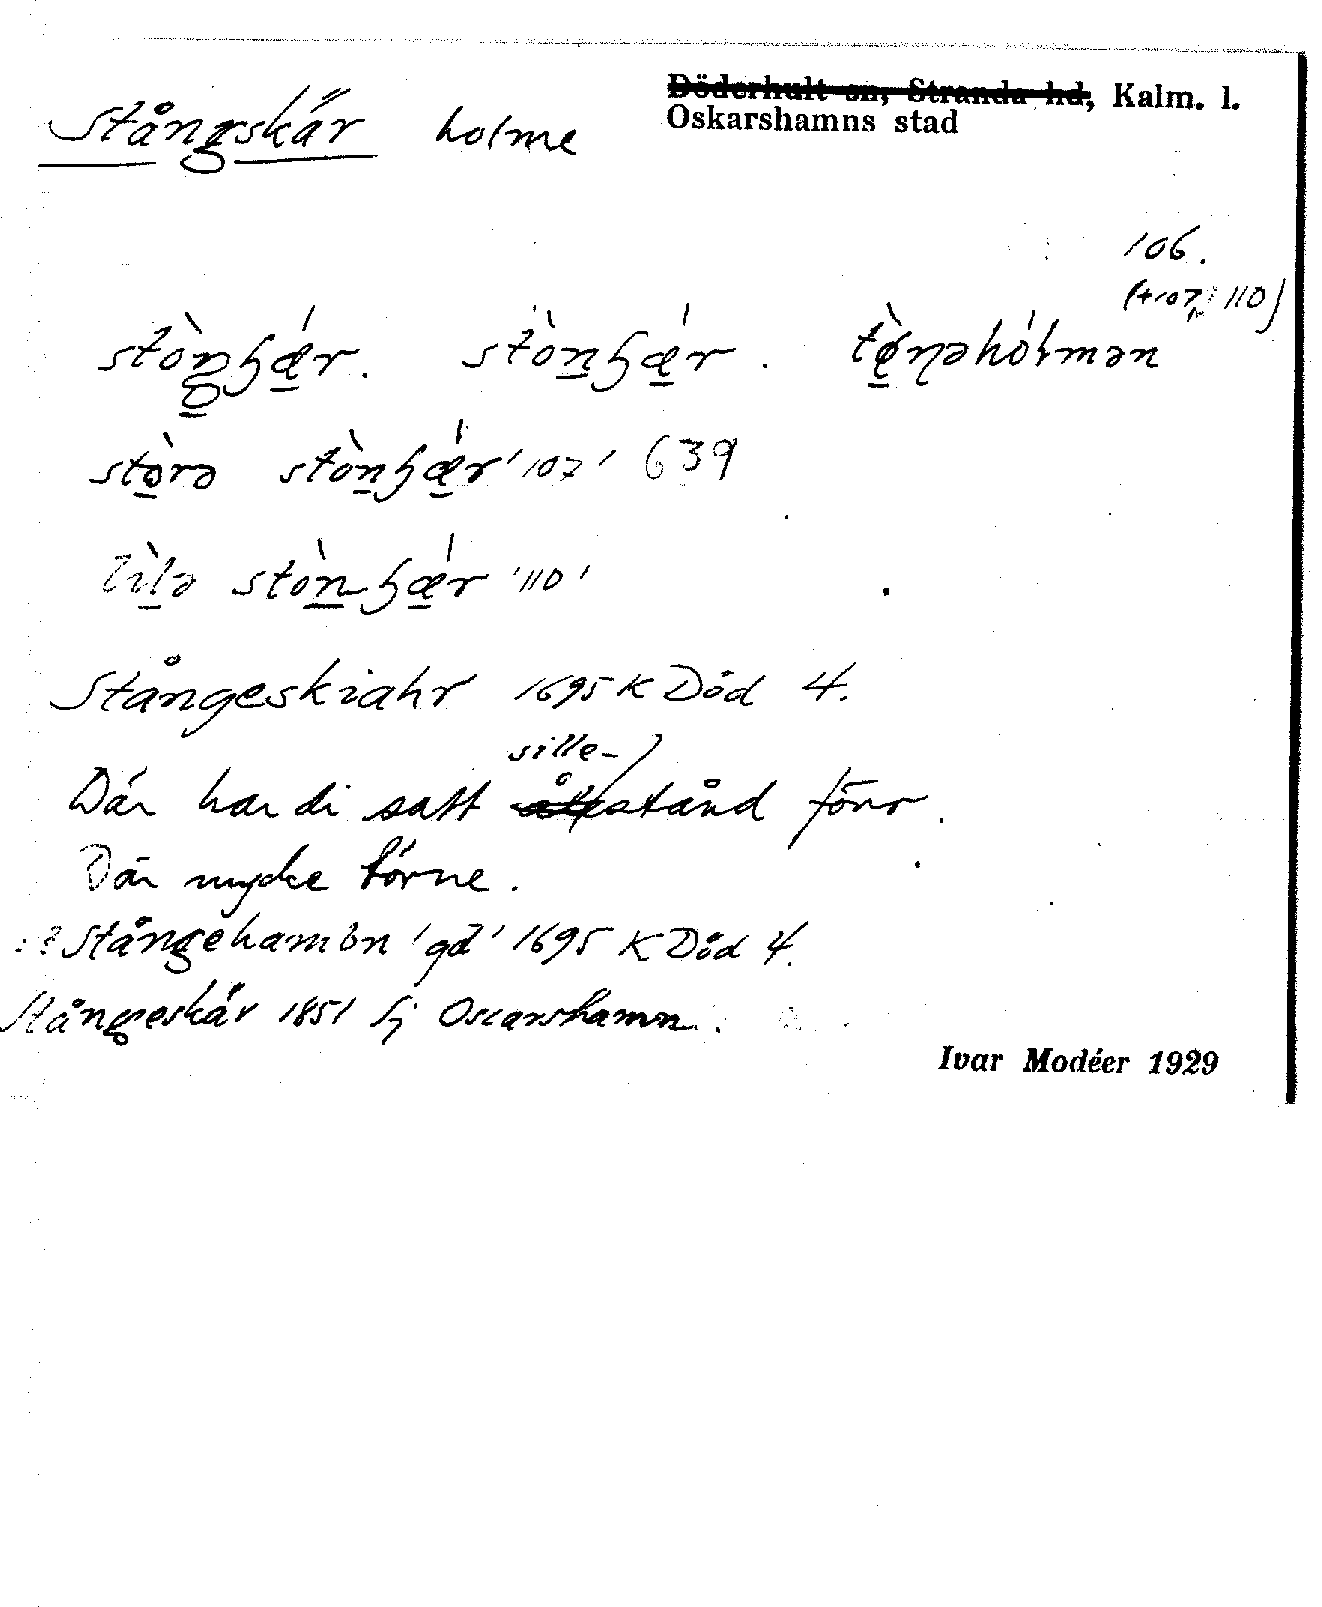 Stångskär holme
Döderhult sn, Stranda hd, Kalm. l.
Oskarshamns stad
106.
(+107, 110)
stòngʒǽr. stònʒǽr. tø̀ṇəhólmən
stòrə stònʒǽr '107' 639
lìlə stònʒǽr '110'
Stångeskiahr 1695 K Död 4.
sille-
Där har di satt åtestånd förr.
Där mycke törne.
:? Stångehamön 'gd' 1695 K Död 4.
Stångeskär 1851 Sj Oscarshamn.
Ivar Modéer 1929